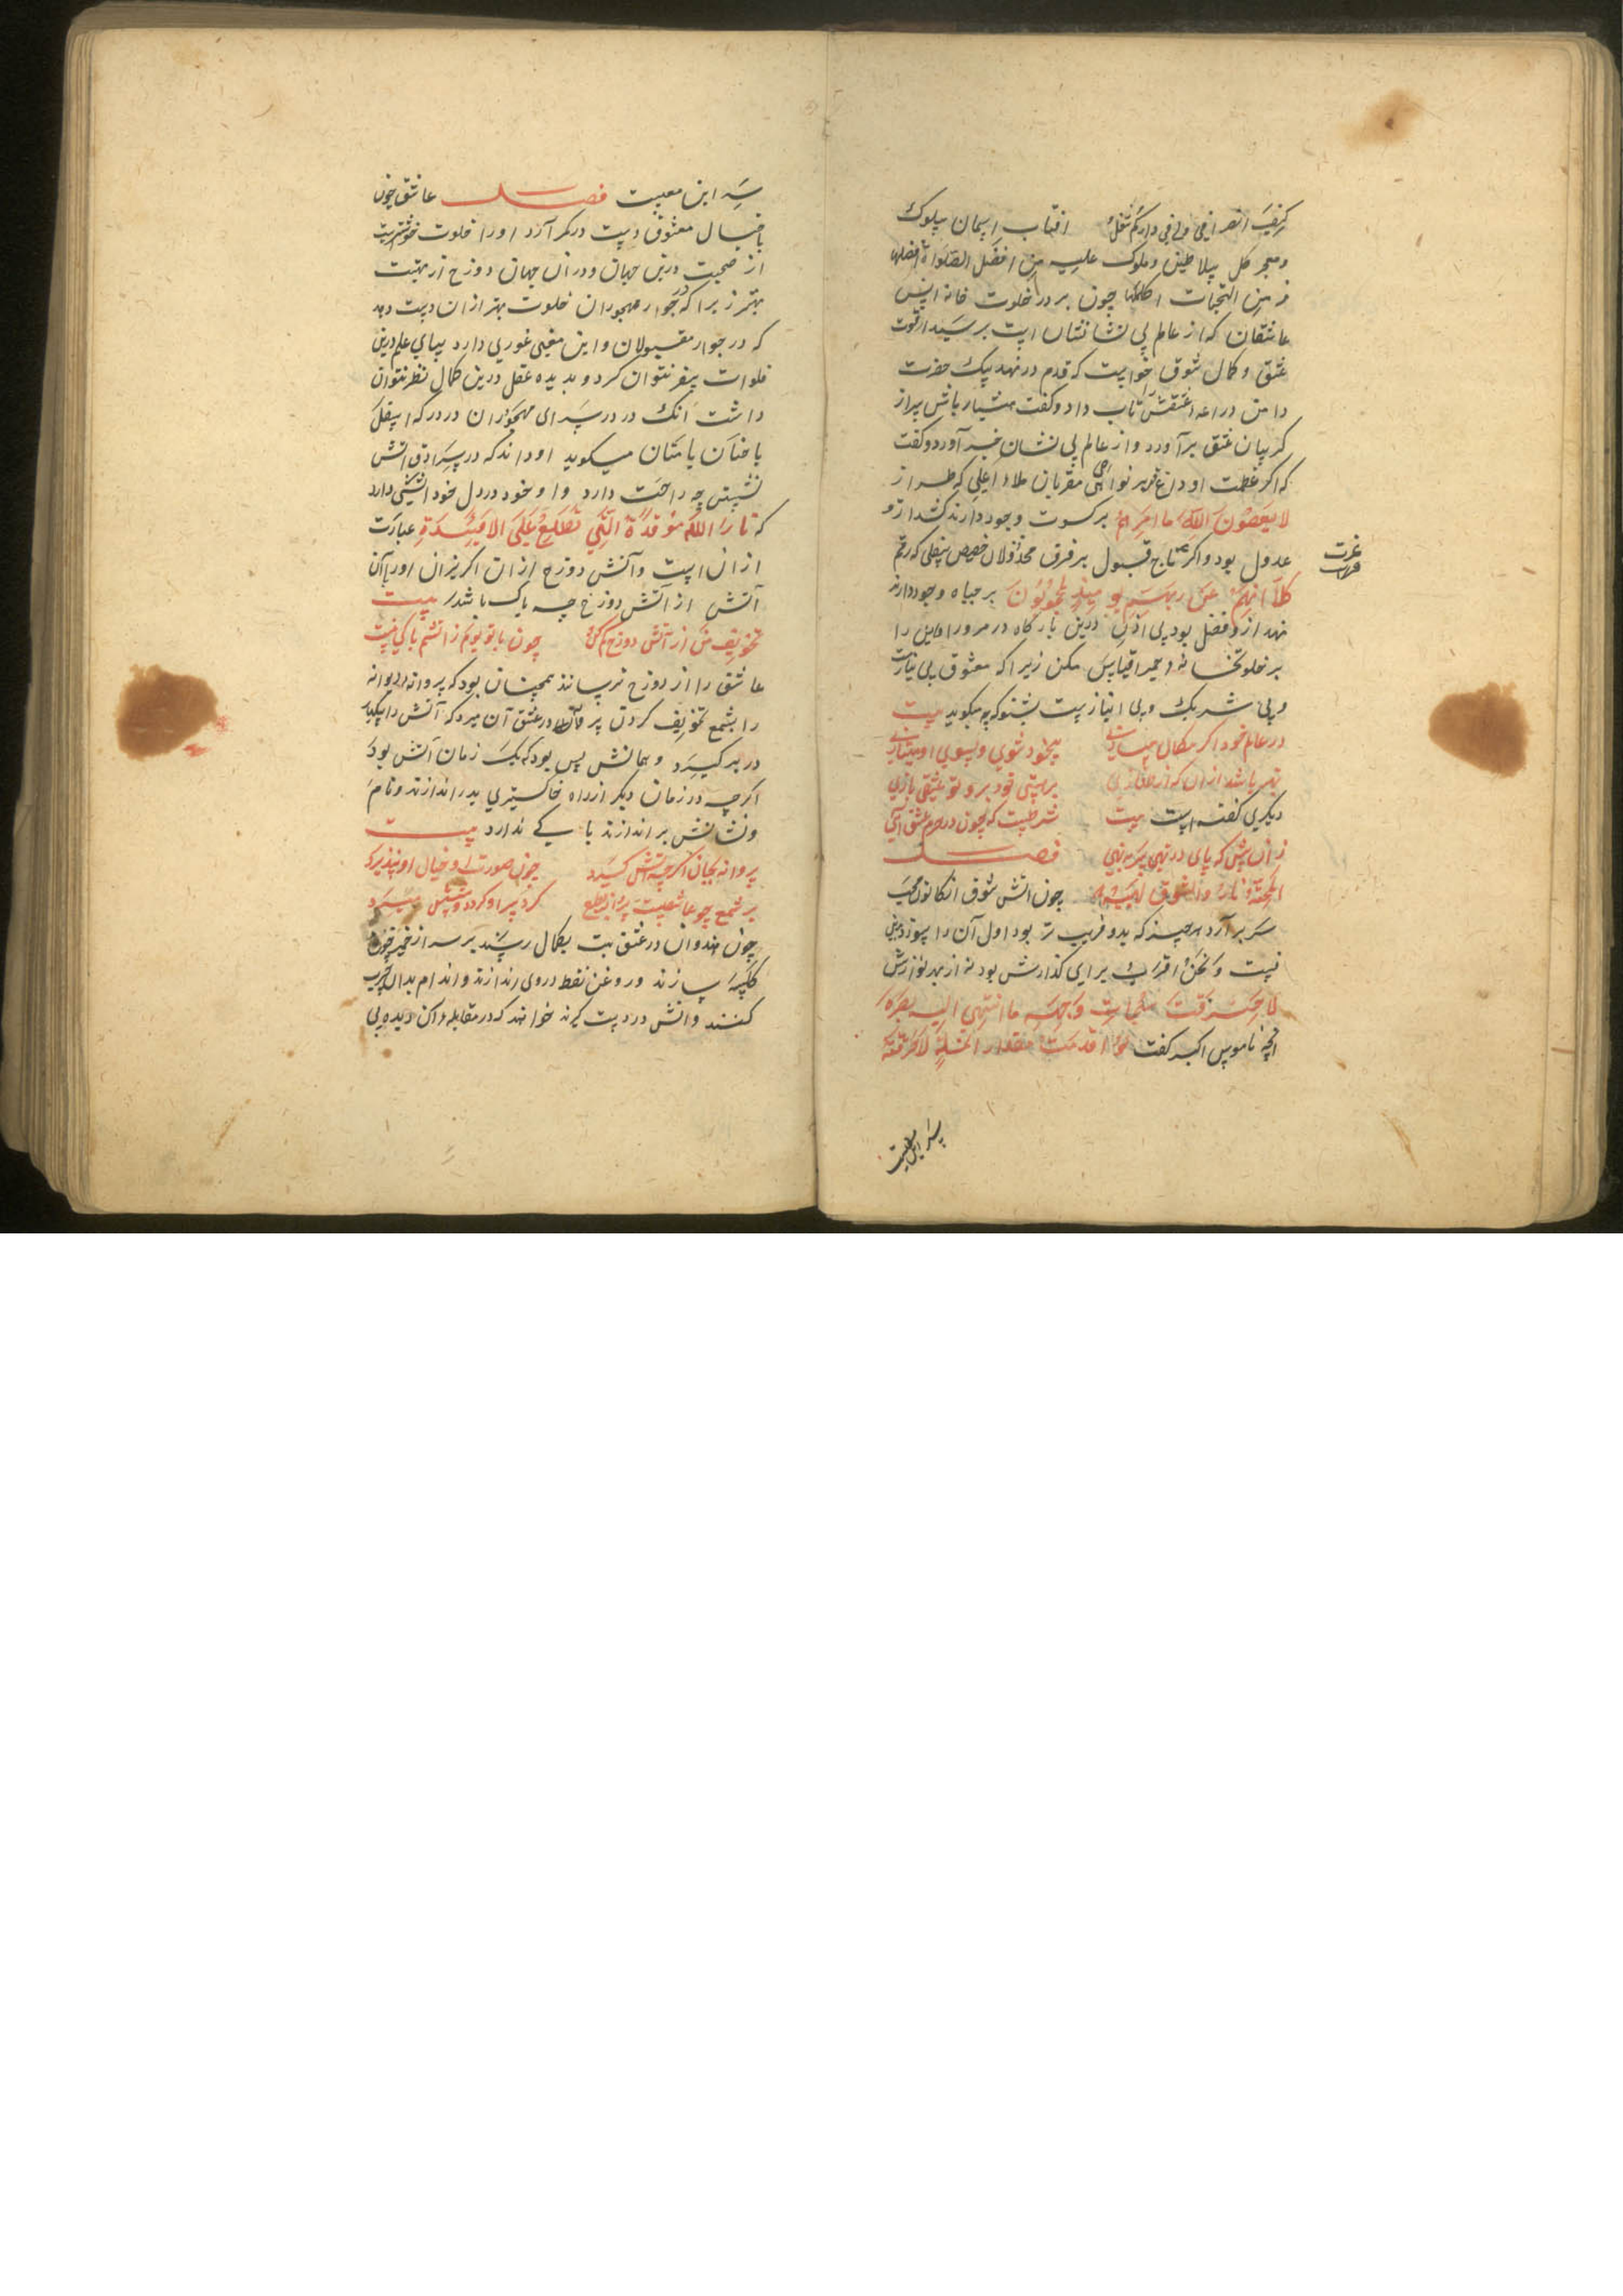 کیف انصرافی ولی فی دارکم شغل افتاب اسمان سلوک
و مهجر کل سلاطین و ملوک علیه من افضل الصلواة افضلها
و من التحیات اکملها چون بر در خلوت خانه انس
عاشقان که از عالم بی نشانی نشان است برسید از قوت
عشق و کمال شوق خواست که قدم در نهد پیک حضرت
دامن دراعه عشقش را تاب داد و گفت هشیار باش سر از
کریبان عشق برآورد و از عالم بی نشان خبر آورد و گفت
که اکر عظمت او داغ قهر بر نواصی مقربان ملاء اعلی که طراز
لا یعصون الله ما امرهم بر کسوت وجود دارند کشد ازو
عدول بود و اکر تاج قبول بر فرق مخذولان حضیض سفلی که رقم
عزت
کلا انهم عن ربهم یومئذ لمحجوبون بر جباه وجود دارند
نهد ازو فضل بود بی اذن درین بارگاه در مرو و این را
بر خلوتخانه حمیرا قیاس مکن زیرا که معشوق بی نیازست
و بی شریک و بی انباز ست بشنو که چه میکوید بیت
در عالم خود اکر مکان بیخود شوی و بسوی او
بهتر باشد ازان که از بر هستی خود برو تو عشقی بازی
دیکری گفته است بیت شرطیست که چون در حرم عشق آیی
زان پیش که پای در نهی سر بنهی فصل
المحبة نار والشوق لهیبها چون اتش شوق از کانون محبت
سر بر آرد هرچیز که بدو قریب تر بود اول آن را سوزد
نیست و نحن اقرب برای گدازش بود نه از بهر نوازش
لاحرقت سبحات وجهه ما انتهی الیه بصره
انچه ناموس اکبر گفت لو تقدمت مقدار انملة لاحترقت
سر این معیت
سر این معیت فصل عاشق چون
با خیال معشوق دست در کمر آرد او را خلوت خوشترست
از صحبت درین جهان و دران جهان دوزخ از بهشت
بهتر زیرا که در جوار مهجوران خلوت بهتر ازان دست دهد
که در جوار مقبولان و این معنی غوری دارد بپای علم درین
فلوات سفر نتوان کرد و بدیده عقل درین کمال نظر نتوان
داشت آنک در در سرای مهجوران در درکه اسفل
یا حنان یا منان میگوید او داند که در سرادق اتش
نشستن چه راحت دارد و او خود در دل خود اتشی دارد
که نار الله موقدة التی تطلع علی الافئدة عبارت
ازان است و آتش دوزخ ازان اکریزان او را از آن
آتش از آتش دوزخ چه باک باشد بیت
تخویف من از آتش دوزخ کم کن چون با تو بوم ز اتشم باکی نیست
عاشق را از دوزخ ترسانند همچنان بود که پروانه دیوانه
را بشمع تخویف کردن پروانه در عشق آن میرد که آتش را یکبار
در بر گیرد و همانش بس بود که یک زمان آتش بود
اگرچه در زمان دیگر از راه خاکستری بدر اندازند و نام
و نشانش براندازند باکی ندارد بیت
پروانه بجان اگرچه آتش گیرد چون صورت او خیال او نپذیرد
بر شمع چو عاشقیست پروانه بطبع گرد سر او گردد و پیشش میرد
چون هندوان در عشق بت بکمال رسند بر سر از خمیر چون
کاسه سازند و روغن نفط در وی اندازند و اندام بدان چرب
کنند و آتش در دست گیرند خواهند که در مقابله آن دیده بی